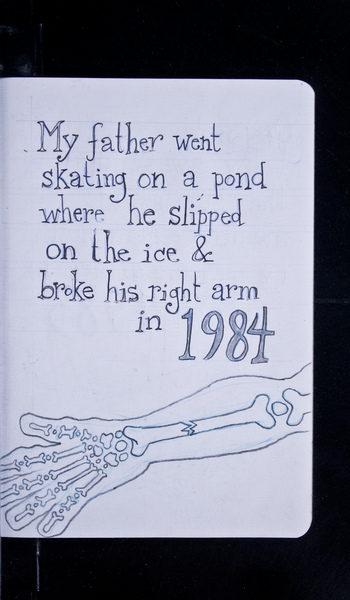 My father went
skating on a pond
where he slipped
on the ice &
broke his right arm
in 1984